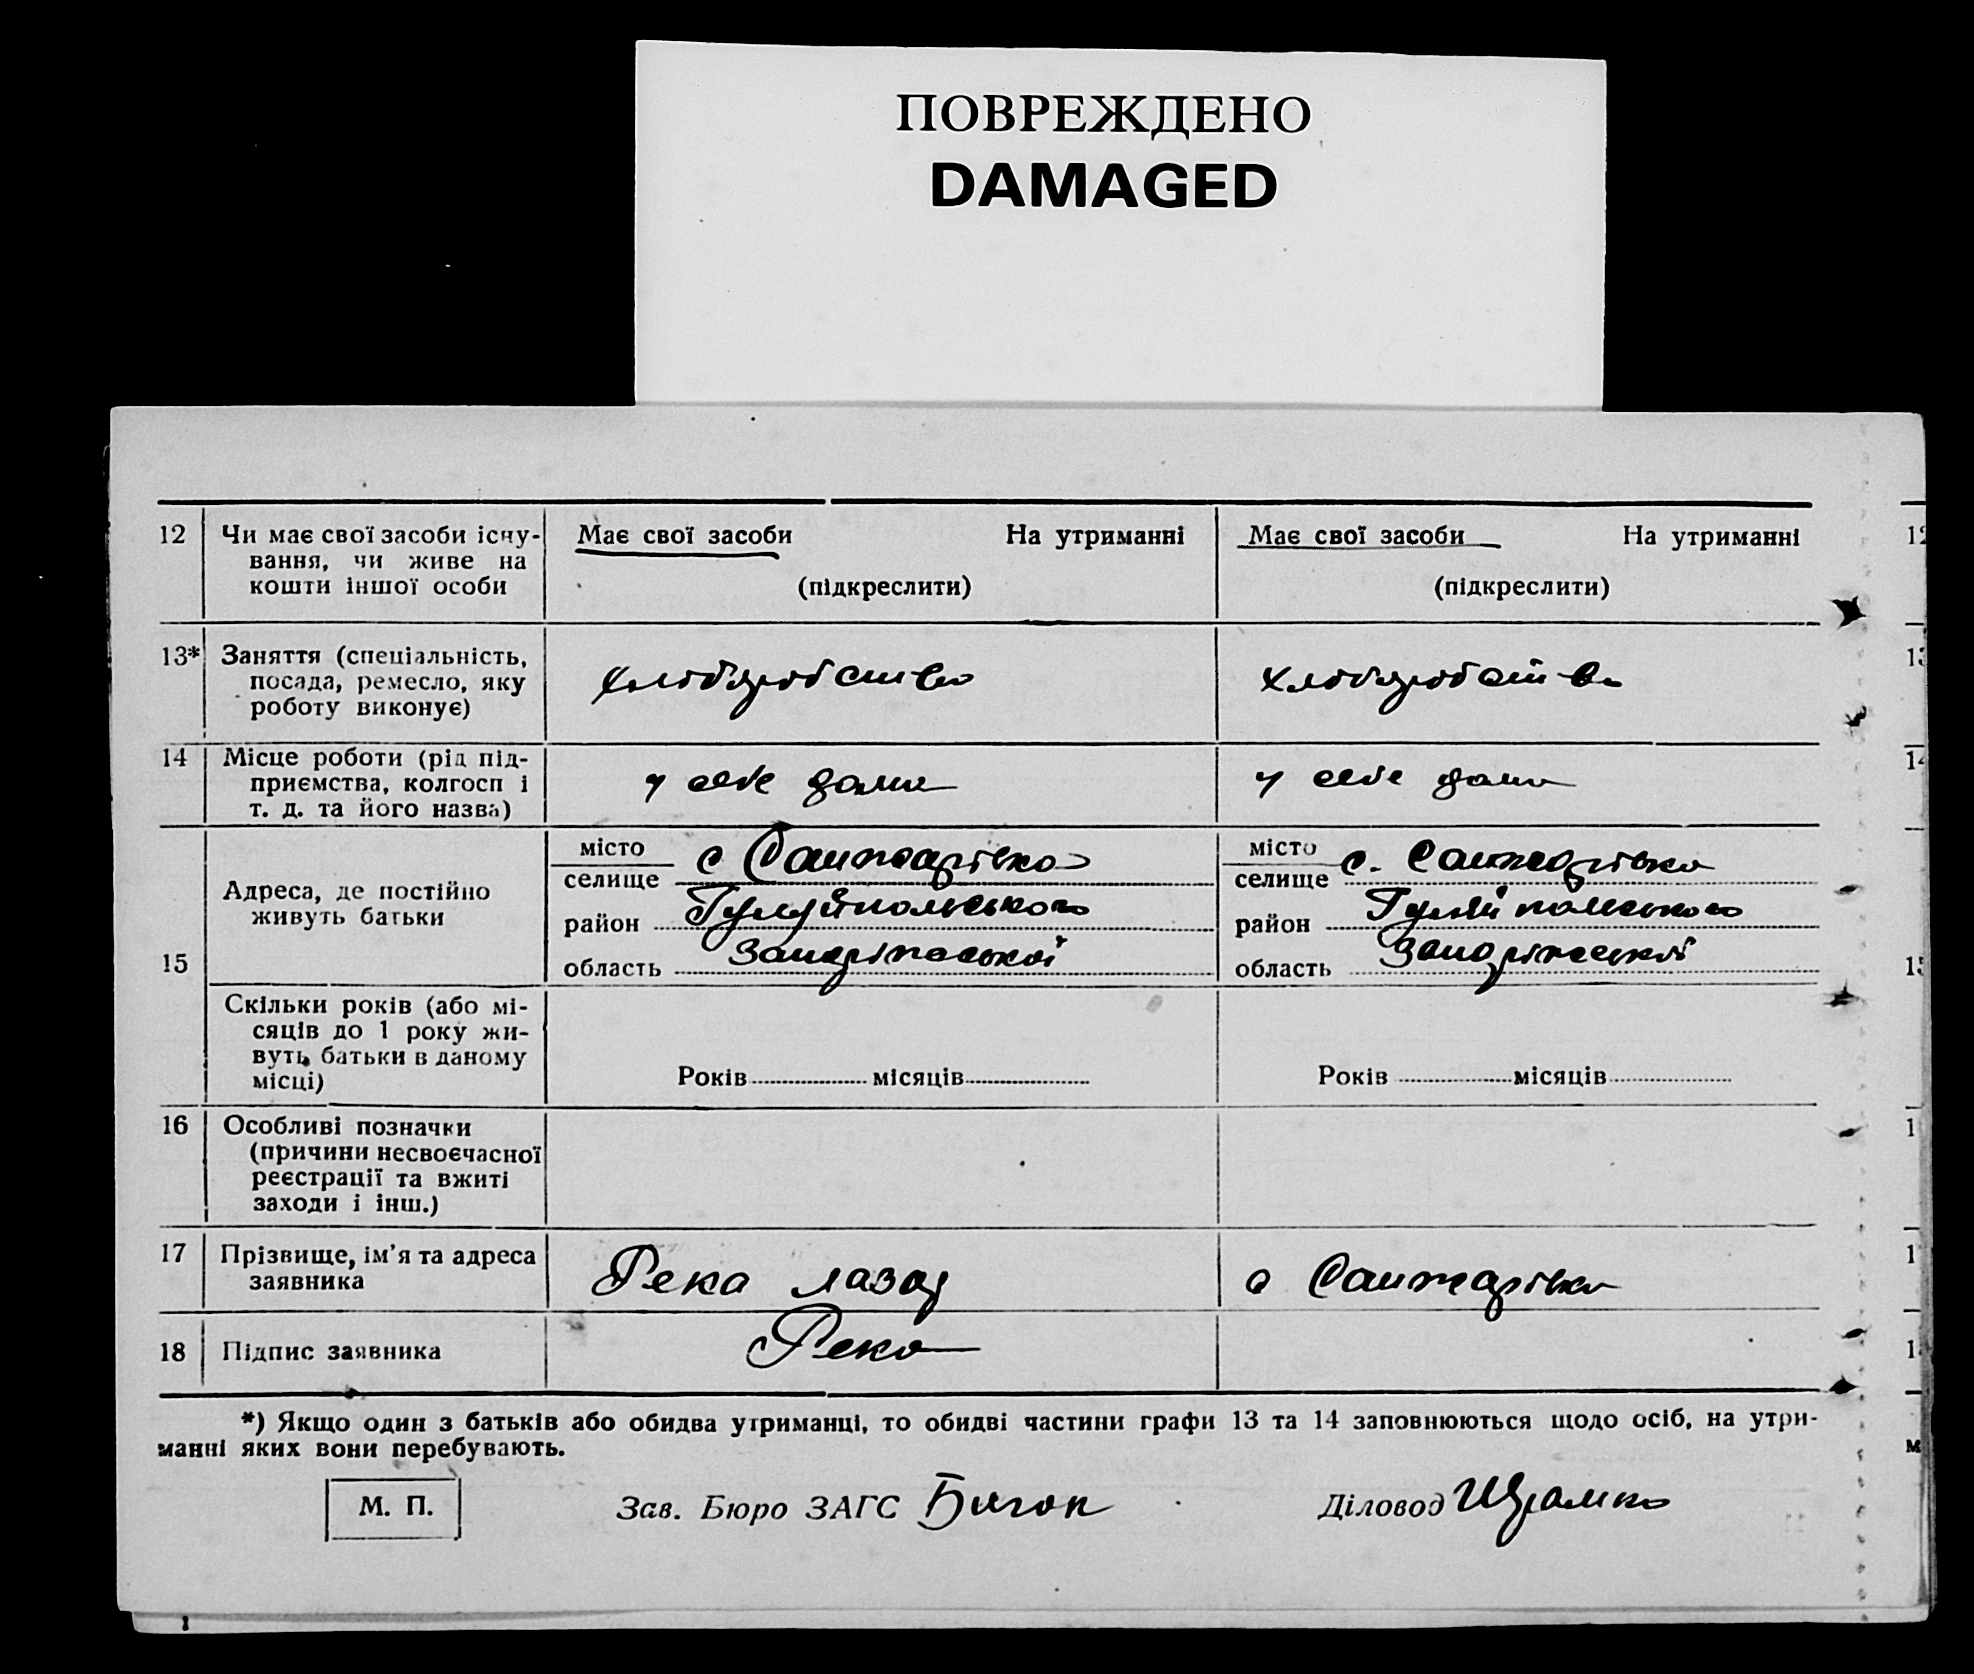 ПОВРЕЖДЕНО
DAMAGED
12 Чи має свої засоби існу- Має свої засоби На утриманні Має свої засоби На утриманні 12
вання, чи живе на
кошти іншої особи (підкреслити) (підкреслити)
13* Заняття (спеціальність, 13
посада, ремесло, яку хлоб'яробство хлоб'яробство
роботу виконує)
14 Місце роботи (рід під- 14
приємства, колгосп і у себе дома у себе дома
т. д. та його назва)
місто с Санжарівка місто с. Санжарівка
селище селище
Адреса, де постійно
живуть батьки район Гуляйпольського район Гуляйпольського
15 область Запоріжської область Запоріжської 15
Скільки років (або мі-
сяців до 1 року жи-
вуть батьки в даному
місці) Років місяців Років місяців
16 Особливі позначки 1
(причини несвоєчасної
реєстрації та вжиті
заходи і інш.)
17 Прізвище, ім'я та адреса 1
заявника Река лазар с Санжарівка
18 Підпис заявника Река 1
*) Якщо один з батьків або обидва утриманці, то обидві частини графи 13 та 14 заповнюються щодо осіб, на утри-
манні яких вони перебувають. м
М. П. Зав. Бюро ЗАГС Діловод Шрамко